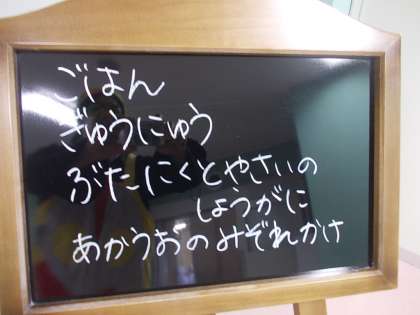 ごはん
ぎゅうにゅう
ぶたにくとやさいの
しょうがに
あかうおのみぞれかけ